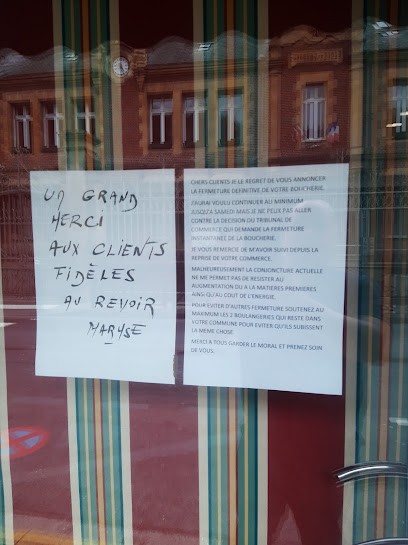 UN GRAND
MERCI
AUX CLIENTS
FIDÈLES
AU REVOIR
MARYSE
CHERS CLIENTS JE LE REGRET DE VOUS ANNONCER
LA FERMETURE DEFINITIVE DE VOTRE BOUCHERIE.
J'AURAI VOULU CONTINUER AU MINIMUM
JUSQU'A SAMEDI MAIS JE NE PEUX PAS ALLER
CONTRE LA DECISION DU TRIBUNAL DE
COMMERCE QUI DEMANDE LA FERMETURE
INSTANTANEE DE LA BOUCHERIE.
JE VOUS REMERCIE DE M'AVOIR SUIVI DEPUIS LA
REPRISE DE VOTRE COMMERCE.
MALHEUREUSEMENT LA CONJONCTURE ACTUELLE
NE ME PERMET PAS DE RESISTER AU
AUGMENTATION DU A LA MATIERES PREMIERES
AINSI QU'AU COUT DE L'ENERGIE.
POUR EVITER D'AUTRES FERMETURE SOUTENEZ AU
MAXIMUM LES 2 BOULANGERIES QUI RESTE DANS
VOTRE COMMUNE POUR EVITER QU'ILS SUBISSENT
LA MEME CHOSE
MERCI A TOUS GARDER LE MORAL ET PRENEZ SOIN
DE VOUS.